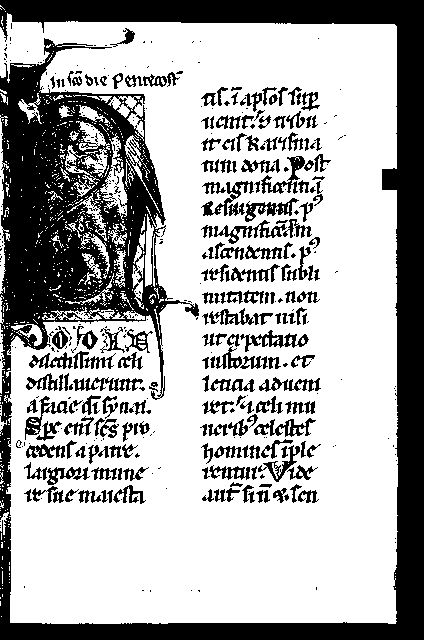 In sc̄o die Pentecost̄
dilectissimi celi
distillauerunt.
a facie di synai.
Spc eni sc̄s pro
cedens a patre.
largiori mune
re sue maiesta
tis. ī apl̄os sup
uenit. ⁊ distribu
it eis karisma
tum dona. Post
magnificentiā
resurgentis. pꝰ
magnificētiam
ascendentis. pꝰ
residentis subli
mitatem. non
restabat nisi
ut expectatio
iustorum. et
leticia adueni
ret. ⁊ celi mu
neribꝰ celestes
homines īple
rentur. Vide
aut̄ si n̄ ⁊ sen